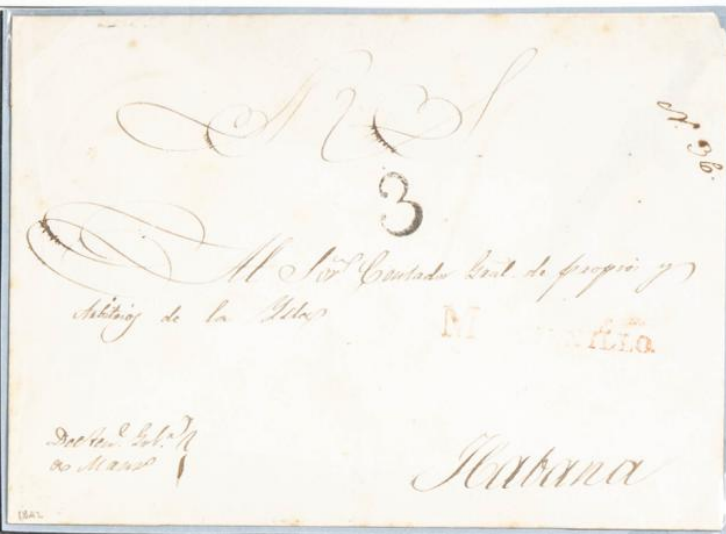 N. 36.
3
Al Sor Contador Gral. de propios y
Arbitrios de la Isla
M NILLO.
Del Ten.
de Manz
Habana
1842